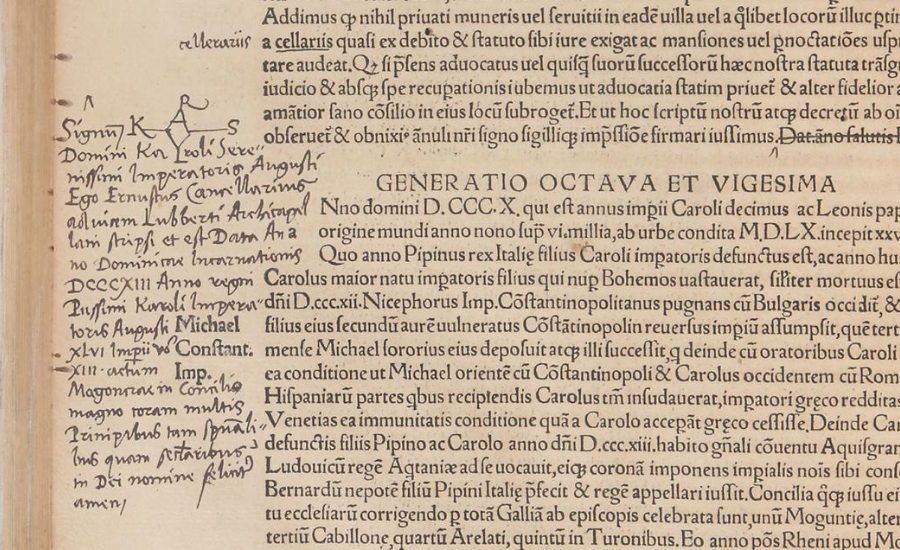 Addimus ꝙ nihil priuati muneris uel seruitii in eadē uilla uel a q̊libet locorū illuc ꝑtin
cellerariis
a cellariis quasi ex debito & statuto sibi iure exigat ac mansiones uel p̱noctatiōes usur
tare audeat. Qꝫ si p̄sens aduocatus uel quisq̄ suorū successorū hæc nostra statuta trāsg
iudicio & absqꝫ spe recuꝑationis iubemus ut aduocatia statim priuet̄ & alter fidelior a
amātior sano cōsilio in eius locū subroget̄. Et ut hoc scriptū nostrū atqꝫ decretū ab oī
obseruet̄ & obnixi⁹ ānuli nr̄i signo sigilliqꝫ imp̄ssiōe firmari iussimus. Dat. āno salutis
GENERATIO OCTAVA ET VIGESIMA
Nno domini D.CCC.X. qui est annus imꝑii Caroli decimus ac Leonis pap
origine mundi anno nono suꝑ vi.millia, ab urbe condita M.D.LX. incepit xxv
Quo anno Pipinus rex Italię filius Caroli imꝑatoris defunctus est, ac anno hu
Carolus maior natu imꝑatoris filius qui nuꝑ Bohemos uastauerat, sil̄iter mortuus es
dn̄i D.ccc.xii. Nicephorus Imp. Cōstantinopolitanus pugnans cū Bulgaris occidit̄, &
filius eius secundū aurē uulneratus Cōstātinopolin reuersus imꝑiū assumpsit, quē tert
mense Michael sororius eius deposuit atqꝫ illi successit, q̱ deinde cū oratoribus Caroli
ea conditione ut Michael orientē cū Cōstantinopoli & Carolus occidentem cū Rom
Hispaniarū partes q̱bus recipiendis Carolus tm̄ insudauerat, imꝑatori gręco redditas
Venetias ea immunitatis conditione quā a Carolo acceꝑāt gręco cessisse, Deinde Car
defunctis filiis Pipino ac Carolo anno dn̄i D.ccc.xiii. habito gn̄ali cōuentu Aquisgran
Ludouicū regē Aq̱taniæ ad se uocauit, eiqꝫ coronā imponens imꝑialis nois̄ sibi cons
Bernardū nepotē filiū Pipini Italię p̄fecit & regē appellari iussit, Concilia q̊qꝫ iussu ei
tu ecclesiarū corrigendo ꝑ totā Galliā ab episcopis celebrata sunt, unū Moguntię, alter
tertiū Cabillone, quartū Arelati, quintū in Turonibus. Eo anno pōs Rheni apud Mo
Signum K A R S
Domini Karoli Sere-
nissimi Imperatoris Augusti
Ego Ernustus Cancellarius
ad uicem Lubberti Archicapel
lani scripsi et est Data An a
no Dominicae Incarnationis
DCCCXIII Anno regni
Piissimi Karoli Impera-
toris Augusti Michael
XLVI Imperii vo Constant.
XIII. actum Imp.
Magonciae in Concilio
magno coram multis
Principibus tam spūali-
bus quam sectaribus
in Dei nomine feliciter
amen